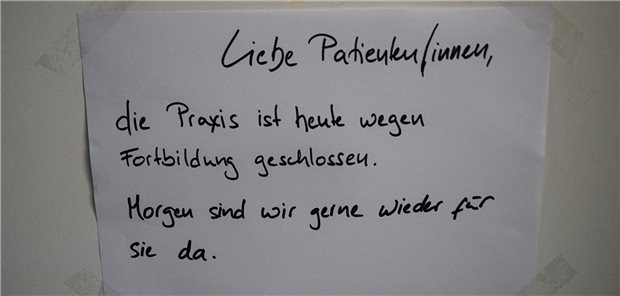 Liebe Patienten/innen,
die Praxis ist heute wegen
Fortbildung geschlossen.
Morgen sind wir gerne wieder für
sie da.